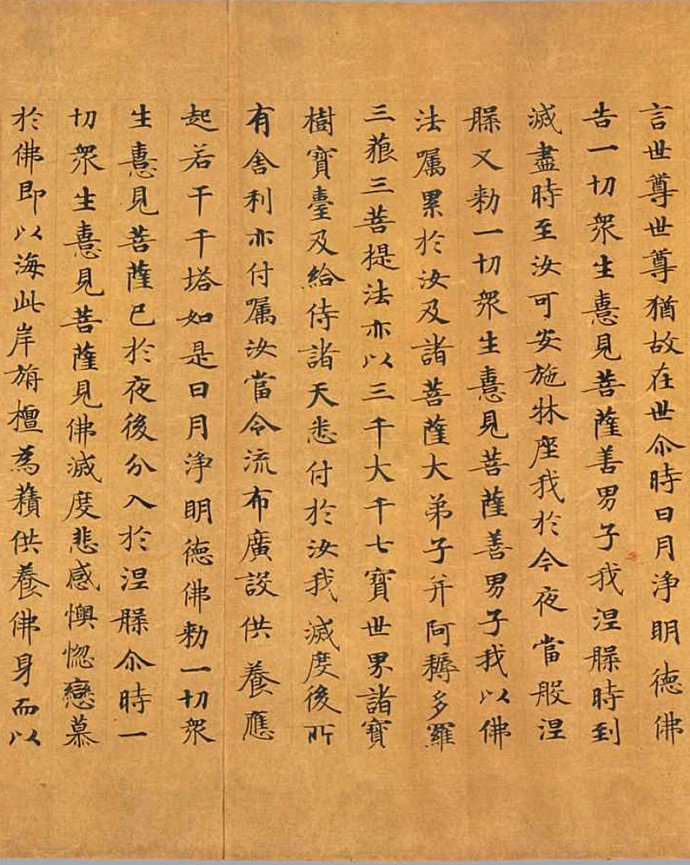 言世尊世尊猶故在世尒時日月淨明德佛
告一切衆生憙見菩薩善男子我涅槃時到
滅盡時至汝可安施牀座我於今夜當般涅
槃又勅一切衆生憙見菩薩善男子我以佛
法嘱累於汝及諸菩薩大弟子并阿耨多羅
三藐三菩提法亦以三千大千七寶世界諸寶
樹寶臺及給侍諸天悉付於汝我滅度後所
有舍利亦付嘱汝當令流布廣設供養應
起若干千塔如是日月淨明德佛勅一切衆
生憙見菩薩已於夜後分入於涅槃尒時一
切衆生憙見菩薩見佛滅度悲感懊惱戀慕
於佛即以海此岸旃檀為𧂐供養佛身而以